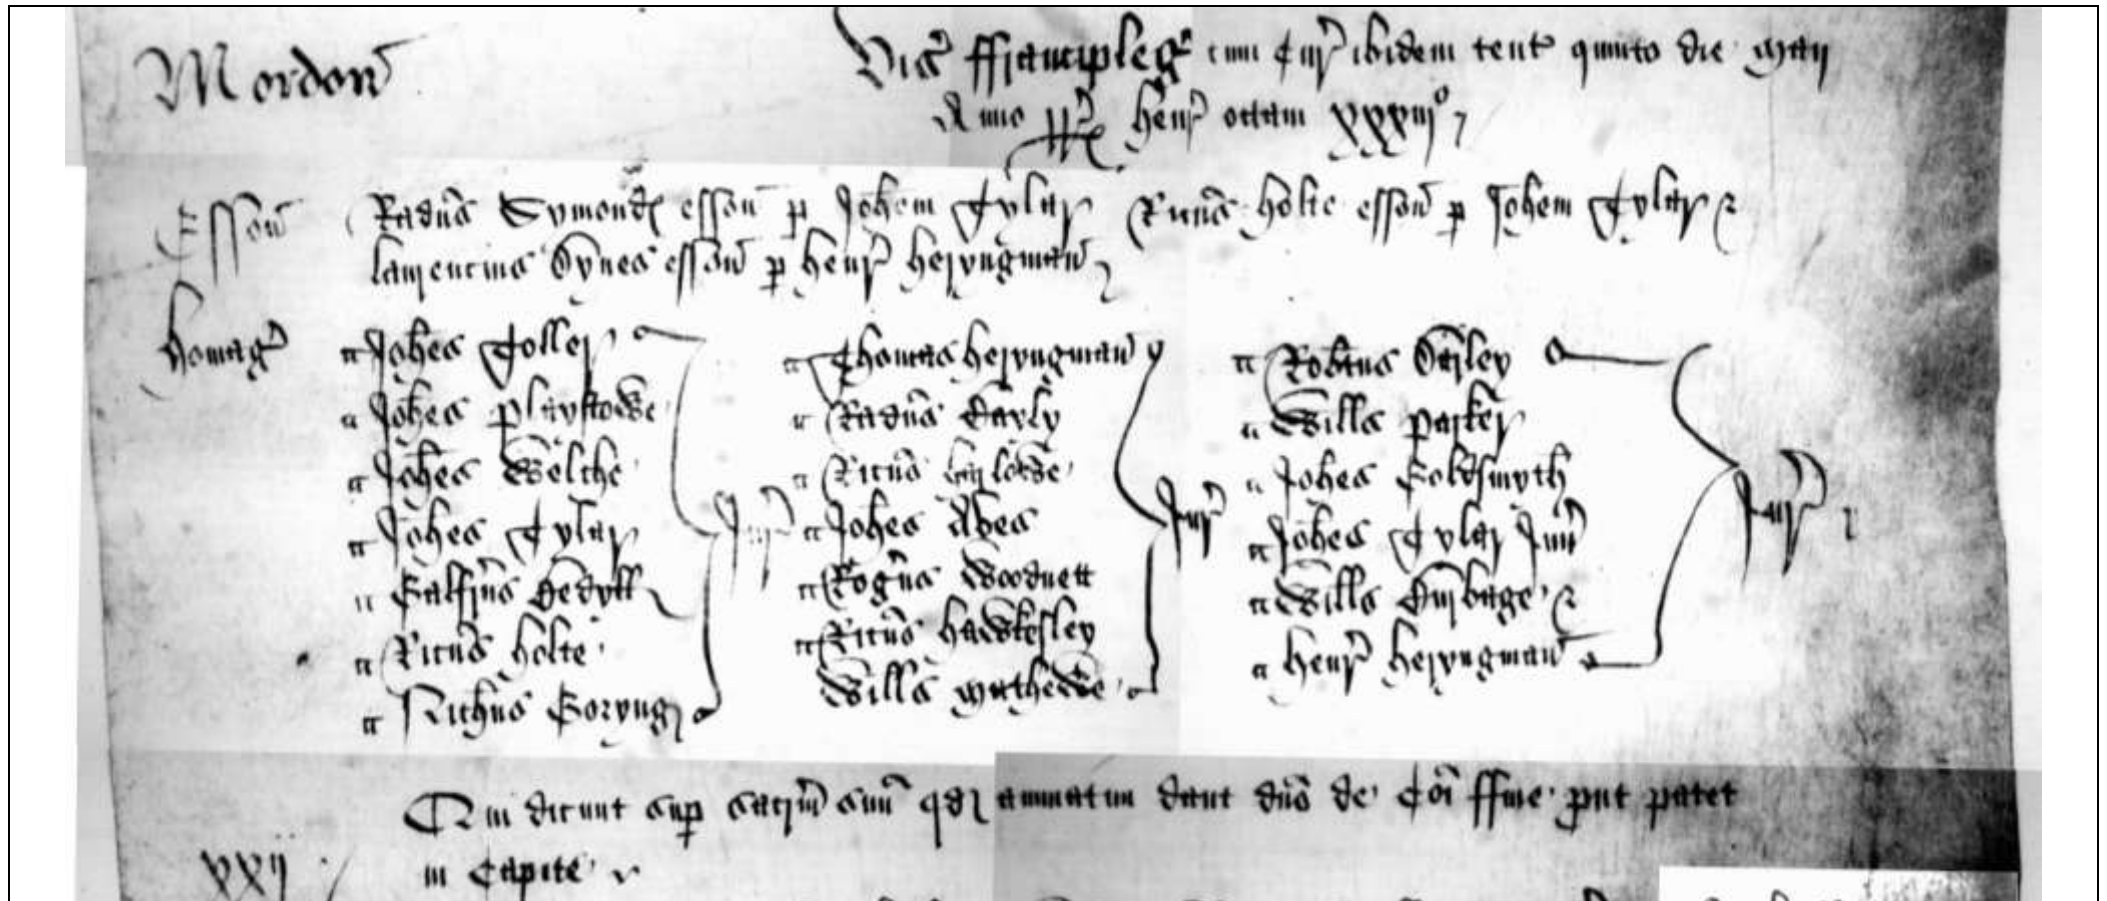 Mordon
Vis ffrancipleg cum Cur ibidem tent quinto die Maij
Anno RR Henr octavi xxxiij
Esson Radus Symond esson p Johem Tyler Ricus Holte esson p Johem Tyler
Laurencius Gynes esson p Henr Heryngman
Homag
Johes Toller
Johes Playstowe
Johes Welche
Johes Tyler
Galfrus
Ricus Holte
Nichus Goryng
Jur
Thomas Heryngman
Radus
Ricus
Johes Abes
Rogus Woodnett
Ricus Hawkesley
Willa Mathewe
Jur
Robtus
Willa Parker
Johes Goldsmyth
Johes Tyler Jun
Willa Burbage
Henr Heryngman
Jur
Qui dicunt sup sacrm suu qd annatim dant dno de Coi ffine put patet
in capite